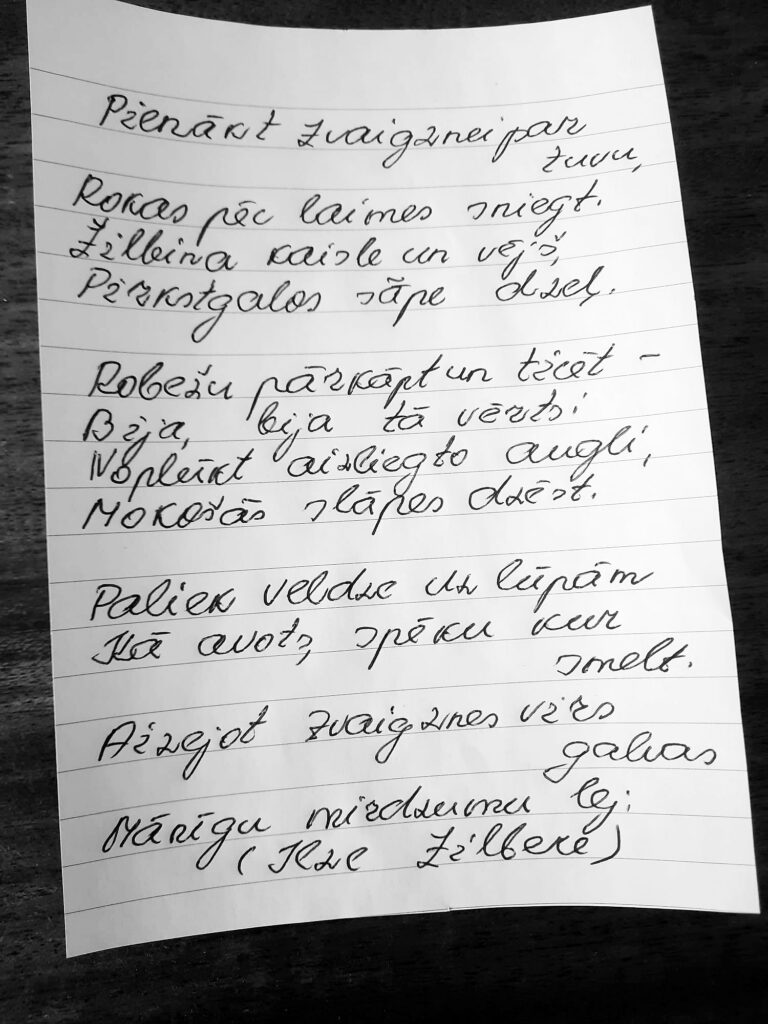 Pienākt zvaigznei par
tuvu,
Rokas pēc laimes sniegt.
Žilbina kaisle un vējš,
Pirkstgalos sāpe dzeļ.
Robežu pārkāpt un ticēt –
Bija, bija tā vērts:
Noplūkt aizliegto augli,
Mokošās slāpes dzēst.
Paliek veldze uz lūpām
Kā avots, spēku kur
smelt.
Aizejot zvaigznes virs
galvas
Mānīgu mirdzumu lej.
(Ilze Žilbere)